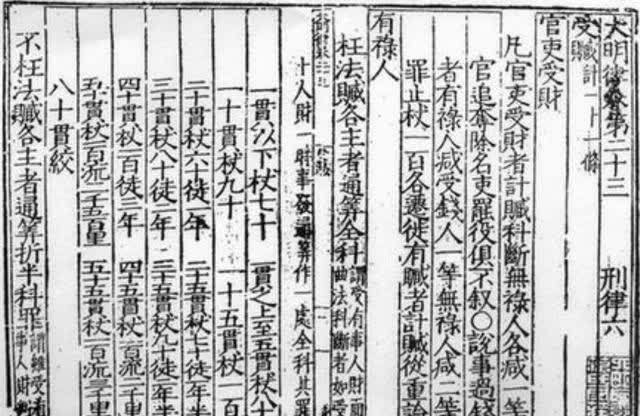 大明律卷第二十三 刑律六
受贓計一十一條
官吏受財
凡官吏受財者計贓科斷無祿人各減一等
官追奪除名吏罷役俱不敘○說事過錢
者有祿人減受錢人一等無祿人減二等
罪止杖一百各遷徙有贓者計贓從重論
有祿人
枉法贓各主者通算全科謂受有事人財而曲法科斷者如受
十人財一時事發通算作一處全科其罪
一貫以下杖七十 一貫之上至五貫杖八十
一十貫杖九十 一十五貫杖一百
二十貫杖六十徒一年 二十五貫杖七十徒一年半
三十貫杖八十徒二年 三十五貫杖九十徒二年半
四十貫杖一百徒三年 四十五貫杖一百流二千里
五十貫杖一百流二千五百里 五十五貫杖一百流三千里
八十貫絞
不枉法贓各主者通算折半科罪謂雖受有事人財